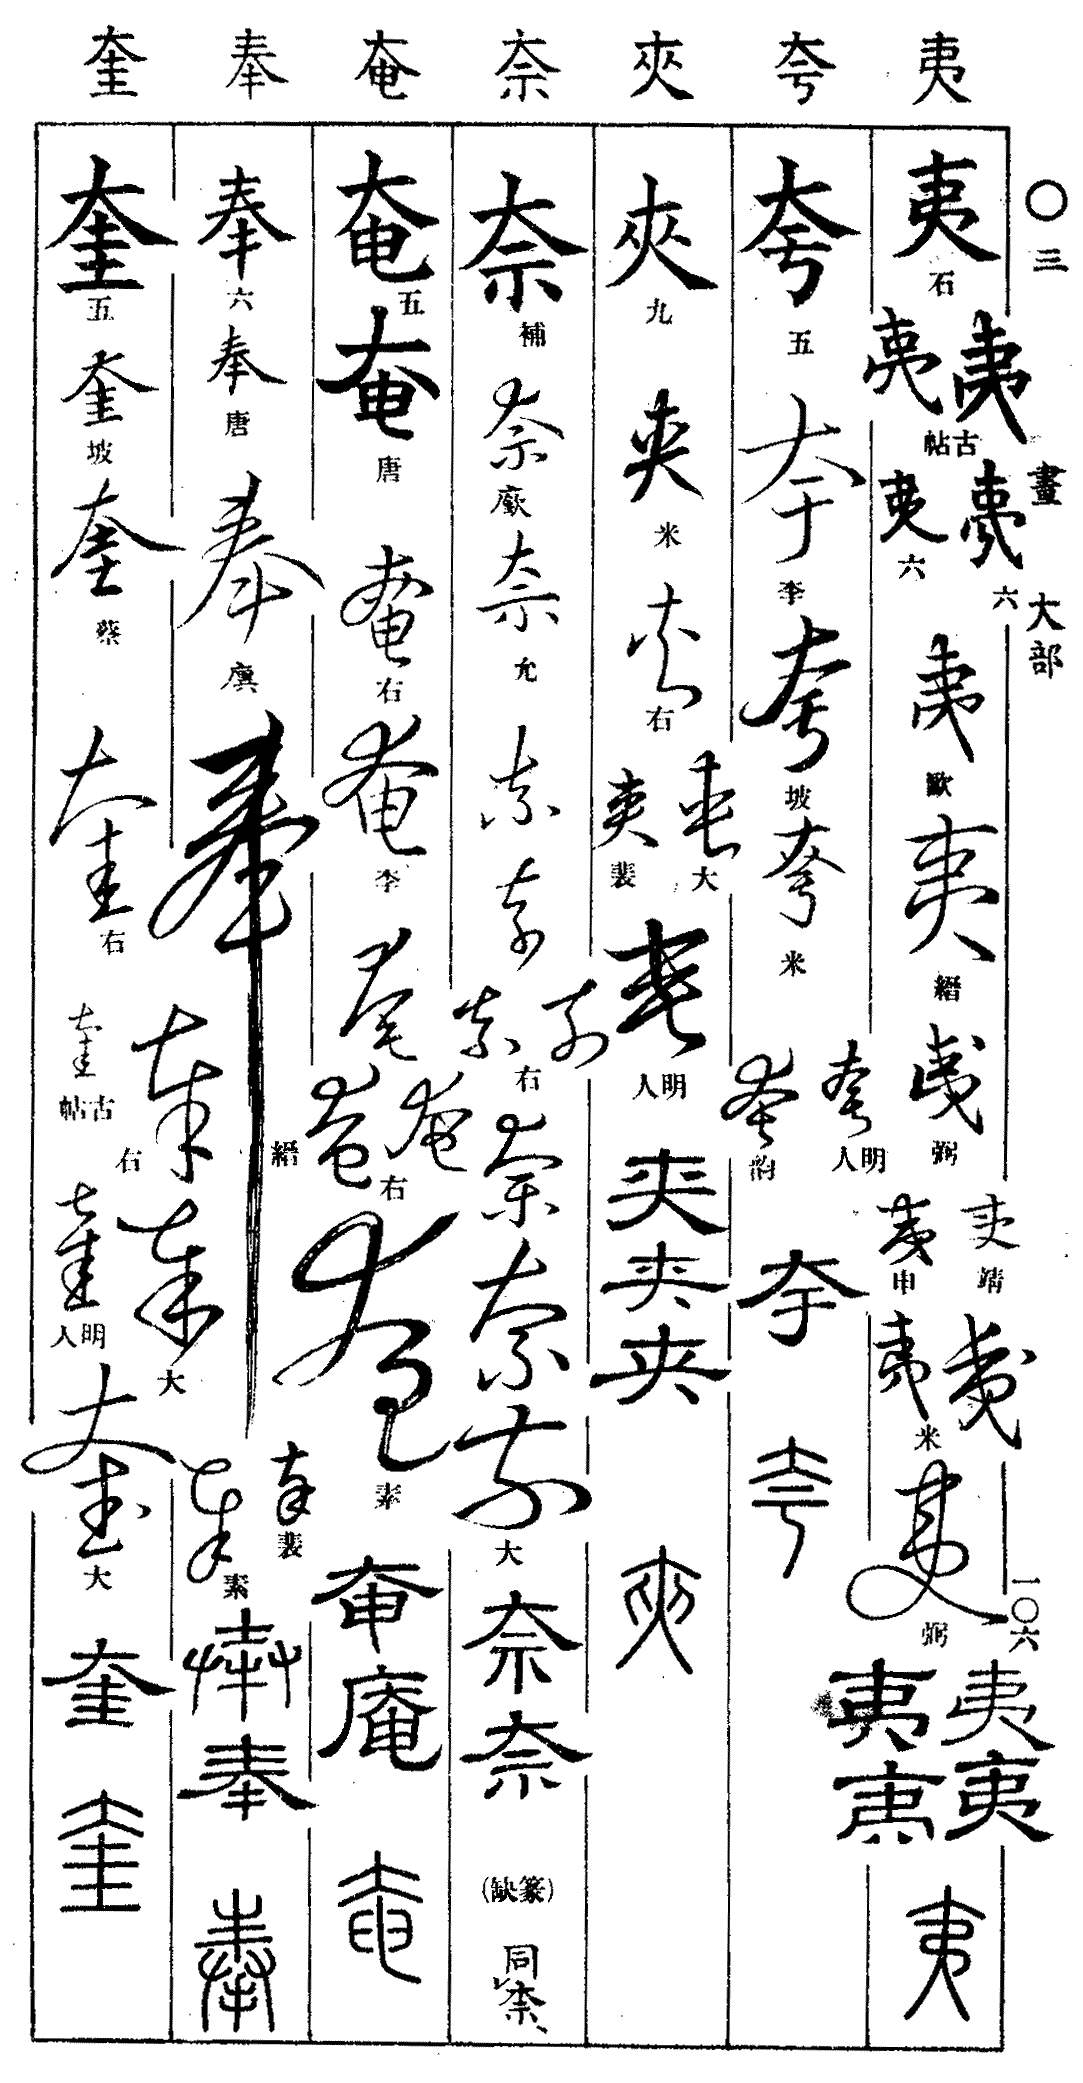 夷 夸 夾 奈 奄 奉 奎
〇三畫 大部 一〇六
夷 石 夷 夷 古帖 夷 六 夷 六 夷 歐 夷 縉 夷 弼 夷 靖 夷 申 夷 夷 米 夷 弼 夷 夷 夷 夷 夷
夸 五 夸 李 夸 坡 夸 米 夸 明人 夸 韵 夸 夸
夾 九 夾 米 夾 右 夾 大 夾 裴 夾 明人 夾 夾 夾 夾
奈 補 奈 廞 奈 允 奈 奈 奈 奈 右 奈 奈 奈 大 奈 奈 (篆缺) 同柰
奄 五 奄 唐 奄 右 奄 李 奄 奄 奄 右 奄 素 奄 庵 奄
奉 六 奉 唐 奉 廙 奉 縉 奉 右 奉 大 奉 裴 奉 素 奉 奉 奉
奎 五 奎 坡 奎 蔡 奎 右 奎 古帖 奎 明人 奎 大 奎 奎